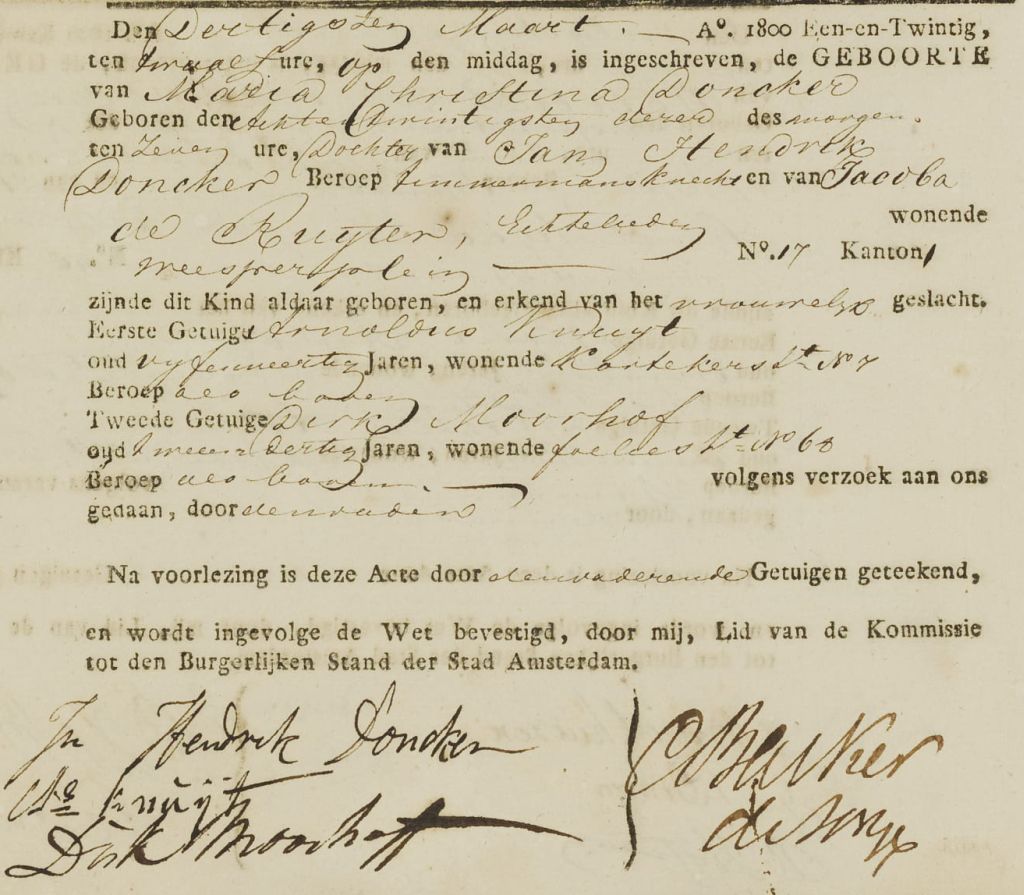 Den Dertigsten Maart. A°. 1800 Een-en-Twintig,
ten twaalf ure, op den middag, is ingeschreven, de GEBOORTE
van Maria Christina Doncker
Geboren den achten twintigsten dezer des morgen.
ten Zeven ure, Dochter van Jan Hendrik
Doncker Beroep timmermansknecht en van Jacoba
de Ruyter, Echtelieden wonende
weesperplein N°. 17 Kanton 1
zijnde dit Kind aldaar geboren, en erkend van het vrouwelyk geslacht.
Eerste Getuige Arnoldus Kruyt
oud vyfenveertig Jaren, wonende Kortekerst. N 7
Beroep als boven
Tweede Getuige Dirk Moorhof
oud tweeen dertig Jaren, wonende foeliest. N° 60
Beroep als boven. volgens verzoek aan ons
gedaan, door den vader
Na voorlezing is deze Acte door den vader en de Getuigen geteekend,
en wordt ingevolge de Wet bevestigd, door mij, Lid van de Kommissie
tot den Burgerlijken Stand der Stad Amsterdam.
Jn Hendrik Doncker
As Kruijt
Dirk Moorhoff
Backer